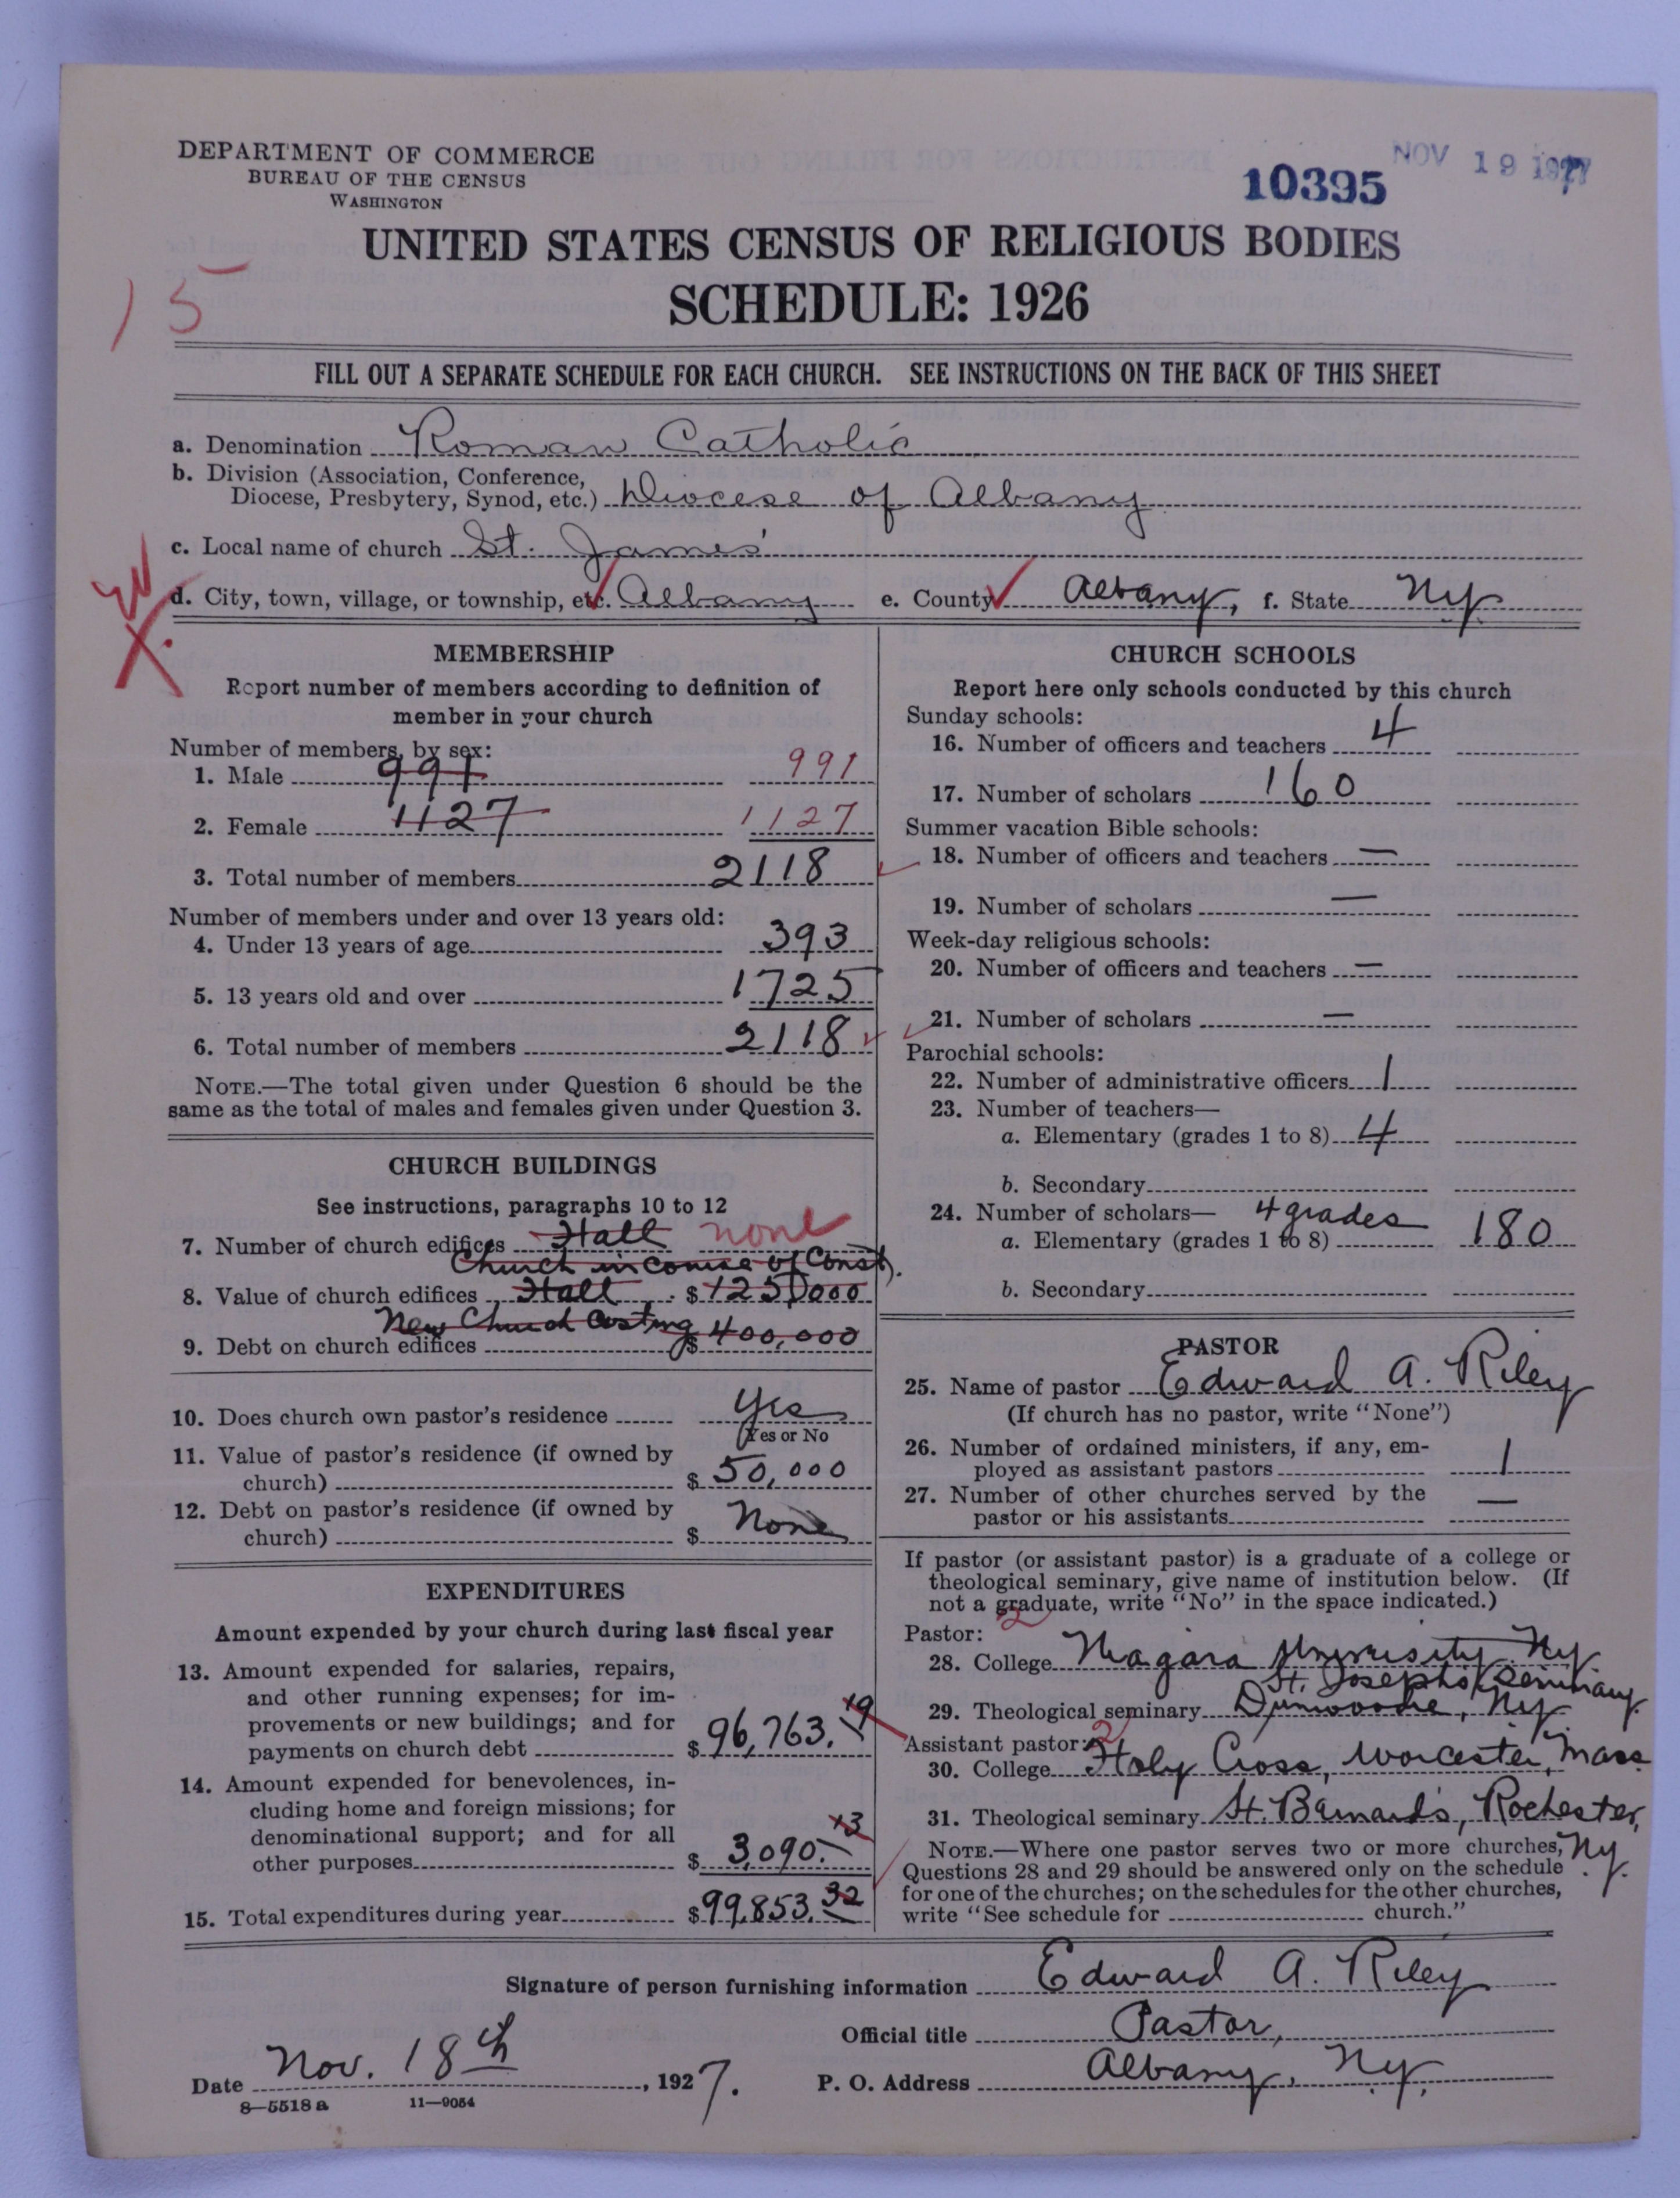 DEPARTMENT OF COMMERCE
BUREAU OF THE CENSUS
WASHINGTON
10395
NOV 19 1927
UNITED STATES CENSUS OF RELIGIOUS BODIES
SCHEDULE: 1926
15
FILL OUT A SEPARATE SCHEDULE FOR EACH CHURCH. SEE INSTRUCTIONS ON THE BACK OF THIS SHEET
a. Denomination Roman Catholic
b. Division (Association, Conference,
Diocese, Presbytery, Synod, etc.) Diocese of Albany
c. Local name of church St. James'
d. City, town, village, or township, etc. Albany e. County Albany, f. State N.y.
MEMBERSHIP
Report number of members according to definition of
member in your church
Number of members, by sex:
1. Male 991 991
2. Female 1127 1127
3. Total number of members 2118
Number of members under and over 13 years old:
4. Under 13 years of age 393
5. 13 years old and over 1725
6. Total number of members 2118
NOTE.—The total given under Question 6 should be the
same as the total of males and females given under Question 3.
CHURCH BUILDINGS
See instructions, paragraphs 10 to 12
7. Number of church edifices Hall none
Church in course of Const.
8. Value of church edifices Hall $ 125,000
New Church Costing
9. Debt on church edifices $ 400,000
10. Does church own pastor's residence Yes
Yes or No
11. Value of pastor's residence (if owned by
church) $ 50,000
12. Debt on pastor's residence (if owned by
church) $ None
EXPENDITURES
Amount expended by your church during last fiscal year
13. Amount expended for salaries, repairs,
and other running expenses; for im-
provements or new buildings; and for
payments on church debt $ 96,763.19
14. Amount expended for benevolences, in-
cluding home and foreign missions; for
denominational support; and for all
other purposes $ 3,090.13
15. Total expenditures during year $ 99,853.32
CHURCH SCHOOLS
Report here only schools conducted by this church
Sunday schools:
16. Number of officers and teachers 4
17. Number of scholars 160
Summer vacation Bible schools:
18. Number of officers and teachers —
19. Number of scholars —
Week-day religious schools:
20. Number of officers and teachers —
21. Number of scholars —
Parochial schools:
22. Number of administrative officers 1
23. Number of teachers—
a. Elementary (grades 1 to 8) 4
b. Secondary
24. Number of scholars— 4 grades
a. Elementary (grades 1 to 8) 180
b. Secondary
PASTOR
25. Name of pastor Edward A. Riley
(If church has no pastor, write "None")
26. Number of ordained ministers, if any, em-
ployed as assistant pastors 1
27. Number of other churches served by the
pastor or his assistants —
If pastor (or assistant pastor) is a graduate of a college or
theological seminary, give name of institution below. (If
not a graduate, write "No" in the space indicated.)
Pastor: 2
28. College Niagara University N.y.
St. Joseph's Seminary
29. Theological seminary Dunwoodie, N.y.
Assistant pastor: 2
30. College Holy Cross, Worcester, Mass.
31. Theological seminary St. Bernard's, Rochester,
N.y.
NOTE.—Where one pastor serves two or more churches,
Questions 28 and 29 should be answered only on the schedule
for one of the churches; on the schedules for the other churches,
write "See schedule for church."
Signature of person furnishing information Edward A. Riley
Official title Pastor,
Date Nov. 18th, 1927. P. O. Address Albany, N.y.
8—5518 a 11—9054